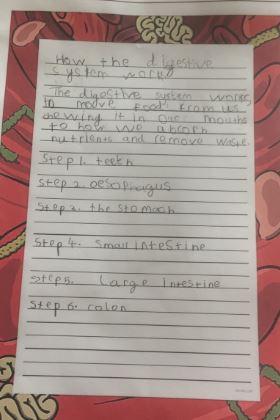 How the digestive
system works
The digestive system works
to move food from us
chewing it in our mouths
to how we absorb
nutrients and remove waste.
Step 1. teeth
Step 2. oesophagus
Step 3. the stomach
Step 4. small intestine
Step 5. Large intestine
Step 6. colon